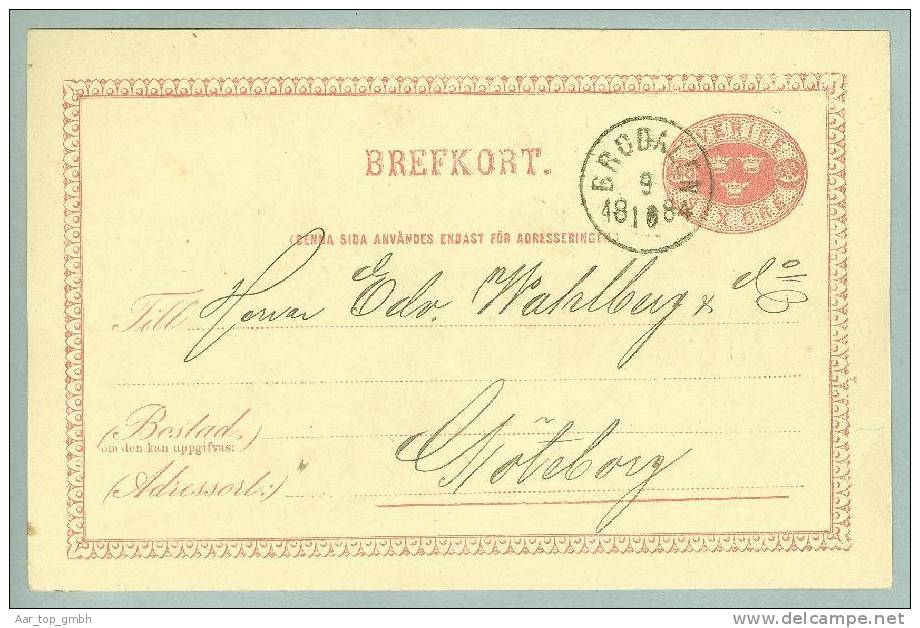 SVERIGE
SEX ÖRE
BREFKORT.
BRODALEN
9
18 84
(DENNA SIDA ANVÄNDES ENDAST FÖR ADRESSERING)
Till Herrar Edv. Wahlberg & Co
(Bostad,)
om den kan uppgifvas:
Göteborg
(Adressort:)
Aar_top_gmbh
www.delcampe.net